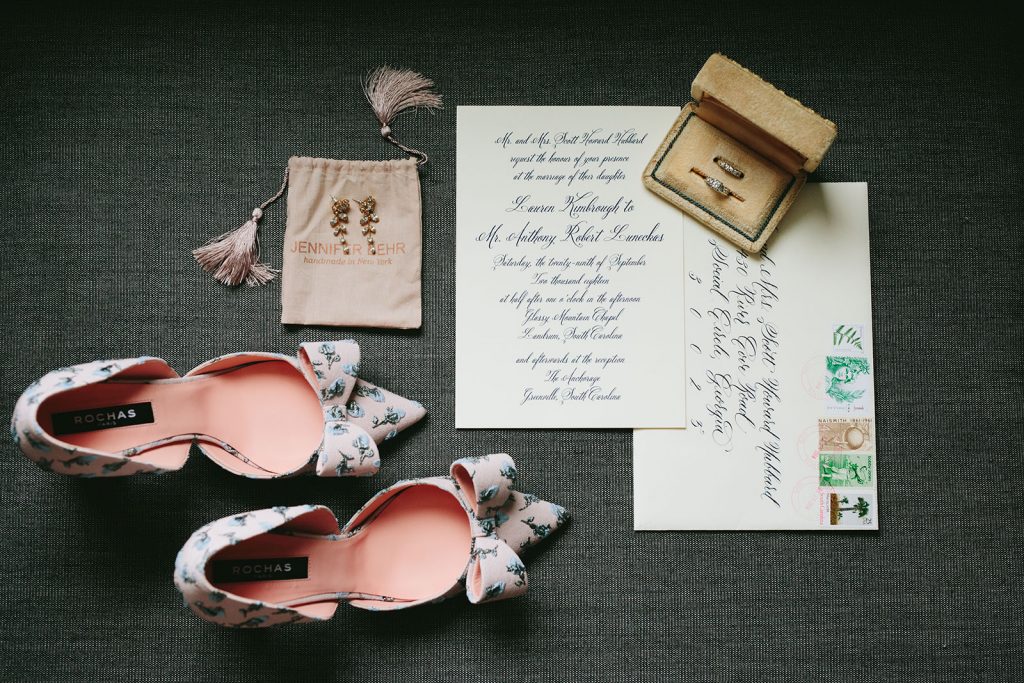 JENNIFER BEHR
handmade in New York
ROCHAS
PARIS
ROCHAS
PARIS
Mr. and Mrs. Scott Howard Hubbard
request the honour of your presence
at the marriage of their daughter
Lauren Kimbrough to
Mr. Anthony Robert Luneckas
Saturday, the twenty-ninth of September
Two thousand eighteen
at half after one o'clock in the afternoon
Glassy Mountain Chapel
Landrum, South Carolina
and afterwards at the reception
The Anchorage
Greenville, South Carolina
Mrs. Scott Howard Hubbard
Rivers Cove Road
Social Circle, Georgia
3 0 0 2 5
NAISMITH